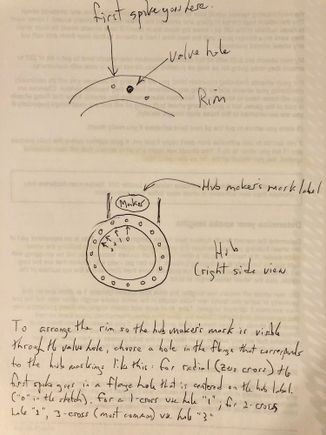 first spike goes here.
valve hole
Rim
Hub maker's mark label
Maker
3 2 1 0
Hub
(right side view
To arrange the rim so the hub maker's mark is visible
through the valve hole, choose a hole in the flange that corresponds
to the hub markings like this: for radial (zero cross) the
first spoke goes in a flange hole that is centered on the hub label.
("0" in the sketch). for a 1-cross use hole "1", for 2-cross
hole "2", 3-cross (most common) use hole "3"